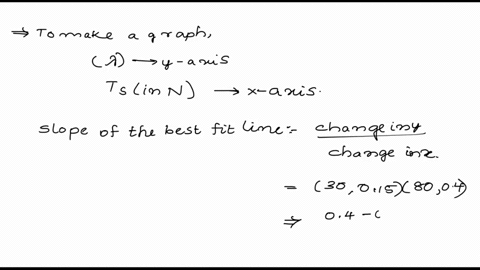 ⇒ To make a graph,
(λ) → y-axis
Ts (in N) → x-axis.
slope of the best fit line:- change in y
change in x.
= (30, 0.15) (80, 0.4)
⇒ 0.4 - (